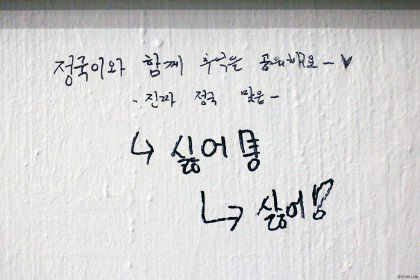 정국이와 함께 추억을 공유해요 ~ ♥
- 진짜 정국 맞음 -
↳ 싫어용
↳ 싫어!